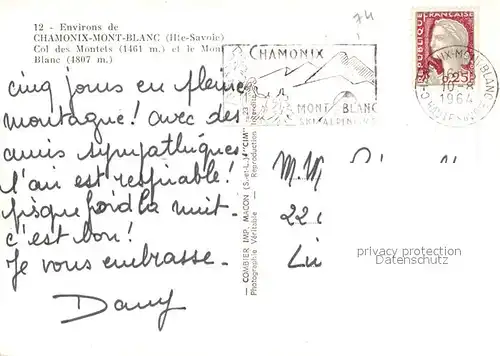 12 - Environs de
CHAMONIX-MONT-BLANC (Hte-Savoie)
Col des Montets (1461 m.) et le Mont
Blanc (1807 m.)
74
REPUBLIQUE
FRANCAISE
0,25
CHAMONIX
MONT BLANC
SKI ALPINISME
CHAMONIX-MONT-BLANC
10-8
1964
cinq jours en pleine
montagne! avec des
amis sympathiques
l'air est respirable!
presque froid la nuit -
c'est bon!
Je vous embrasse -
Dany
— COMBIER IMP. MACON (S.-et-L.) "CIM" —
Photographie Véritable - Reproduction Interdite
M.M
22
Li
privacy protection
Datenschutz